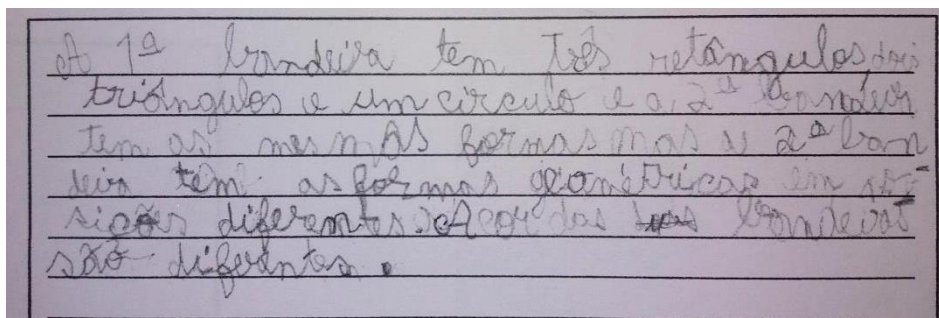 A 1ª bandeira tem três retângulos, dois
triângulos e um circulo e a 2ª bandeira
tem as mesmas formas mas a 2ª ban
deira têm as formas geométricas em po-
sições diferentes. A cor das bandeiras
são diferentes.